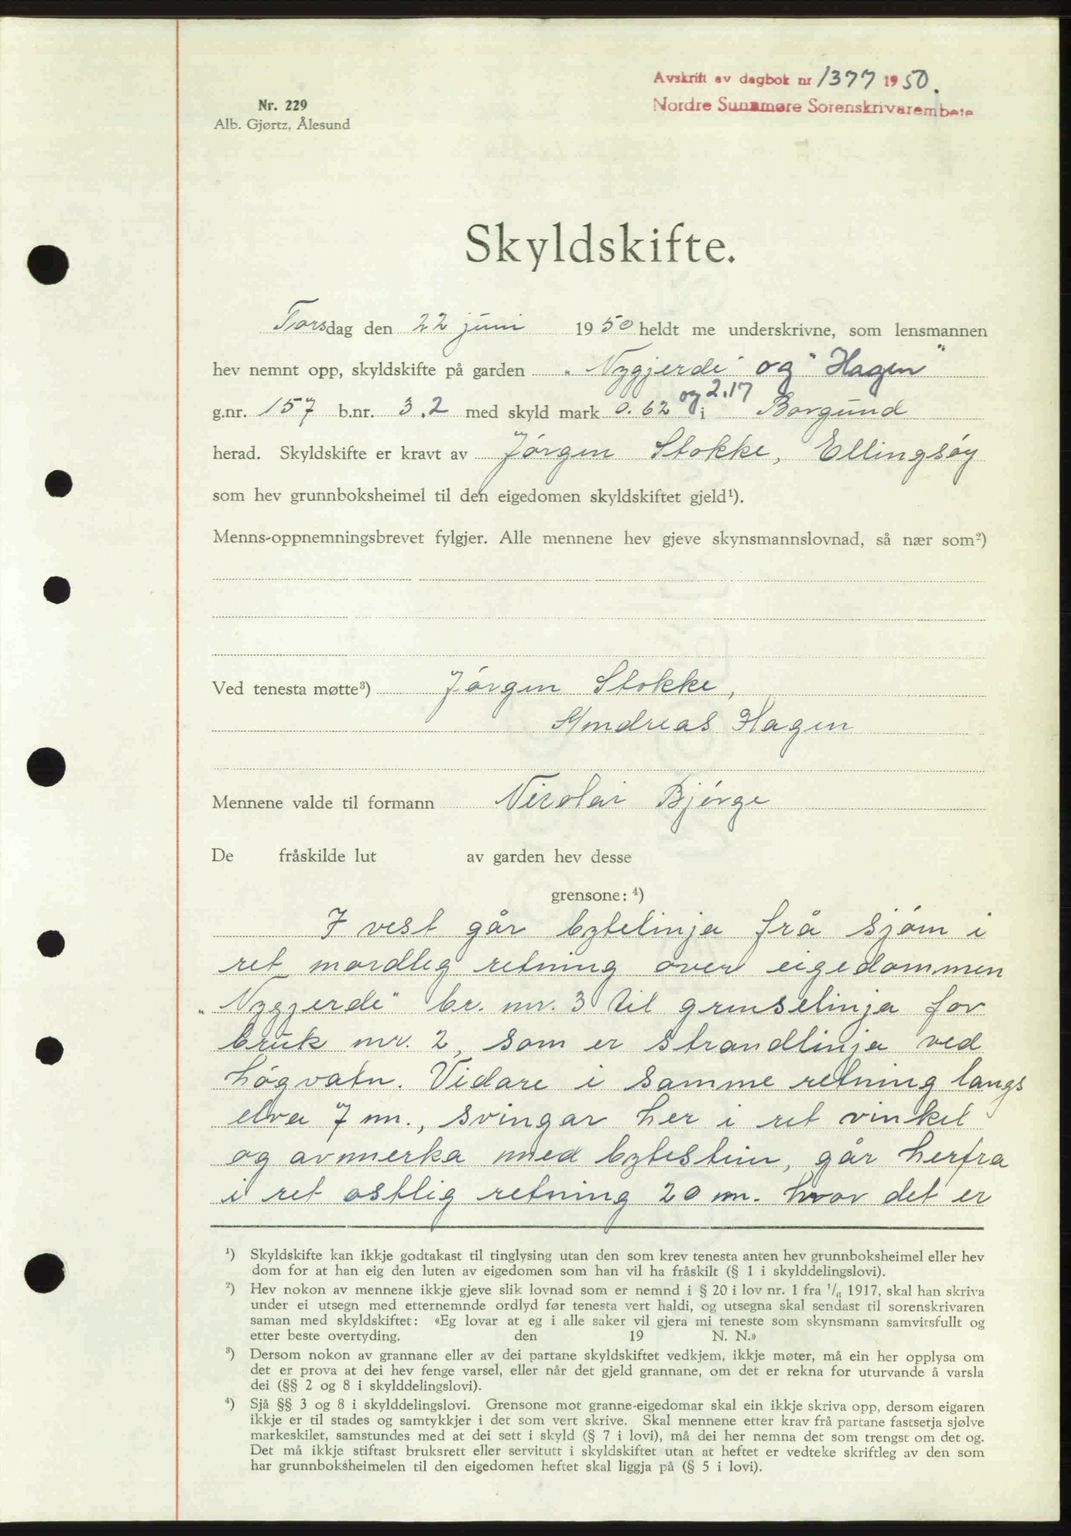 Avskrift av dagbok nr 1377 1950.
Nordre Sunnmøre Sorenskrivarembete
Nr. 229
Alb. Gjørtz, Ålesund
Skyldskifte.
Torsdag den 22 juni 1950 heldt me underskrivne, som lensmannen
hev nemnt opp, skyldskifte på garden „Nygjerde" og "Hagen"
g.nr. 157 b.nr. 3,2 med skyld mark 0.62 og 2.17 i Borgund
herad. Skyldskifte er kravt av Jørgen Stokke, Ellingsøy
som hev grunnboksheimel til den eigedomen skyldskiftet gjeld¹).
Menns-oppnemningsbrevet fylgjer. Alle mennene hev gjeve skynsmannslovnad, så nær som²)
Ved tenesta møtte³) Jørgen Stokke,
Andreas Hagen
Mennene valde til formann Nicolai Bjørge
De fråskilde lut av garden hev desse
grensone: ⁴)
I vest går bytelinja frå sjøen i
ret nordleg retning over eigedommen
„Nygjerde" br. nr. 3 til grenselinja for
bruk nr. 2, som er strandlinja ved
høgvatn. Vidare i samme retning langs
elva 7 m., svingar her i ret vinkel
og avmerka med bytestein, går herfra
i ret østlig retning 20 m. hvor det er
¹) Skyldskifte kan ikkje godtakast til tinglysing utan den som krev tenesta anten hev grunnboksheimel eller hev
dom for at han eig den luten av eigedomen som han vil ha fråskilt (§ 1 i skylddelingslovi).
²) Hev nokon av mennene ikkje gjeve slik lovnad som er nemnd i § 20 i lov nr. 1 fra ¹/₆ 1917, skal han skriva
under ei utsegn med etternemnde ordlyd før tenesta vert haldi, og utsegna skal sendast til sorenskrivaren
saman med skyldskiftet: «Eg lovar at eg i alle saker vil gjera mi teneste som skynsmann samvitsfullt og
etter beste overtyding. den 19 N. N.»
³) Dersom nokon av grannane eller av dei partane skyldskiftet vedkjem, ikkje møter, må ein her opplysa om
det er prova at dei hev fenge varsel, eller når det gjeld grannane, om det er rekna for uturvande å varsla
dei (§§ 2 og 8 i skylddelingslovi).
⁴) Sjå §§ 3 og 8 i skylddelingslovi. Grensone mot granne-eigedomar skal ein ikkje skriva opp, dersom eigaren
ikkje er til stades og samtykkjer i det som vert skrive. Skal mennene etter krav frå partane fastsetja sjølve
markeskilet, samstundes med at dei sett i skyld (§ 7 i lovi), må dei her nemna det som trengst om det og.
Det må ikkje stiftast bruksrett eller servitutt i skyldskiftet utan at heftet er vedteke skriftleg av den som
har grunnboksheimelen til den eigedomen heftet skal liggja på (§ 5 i lovi).